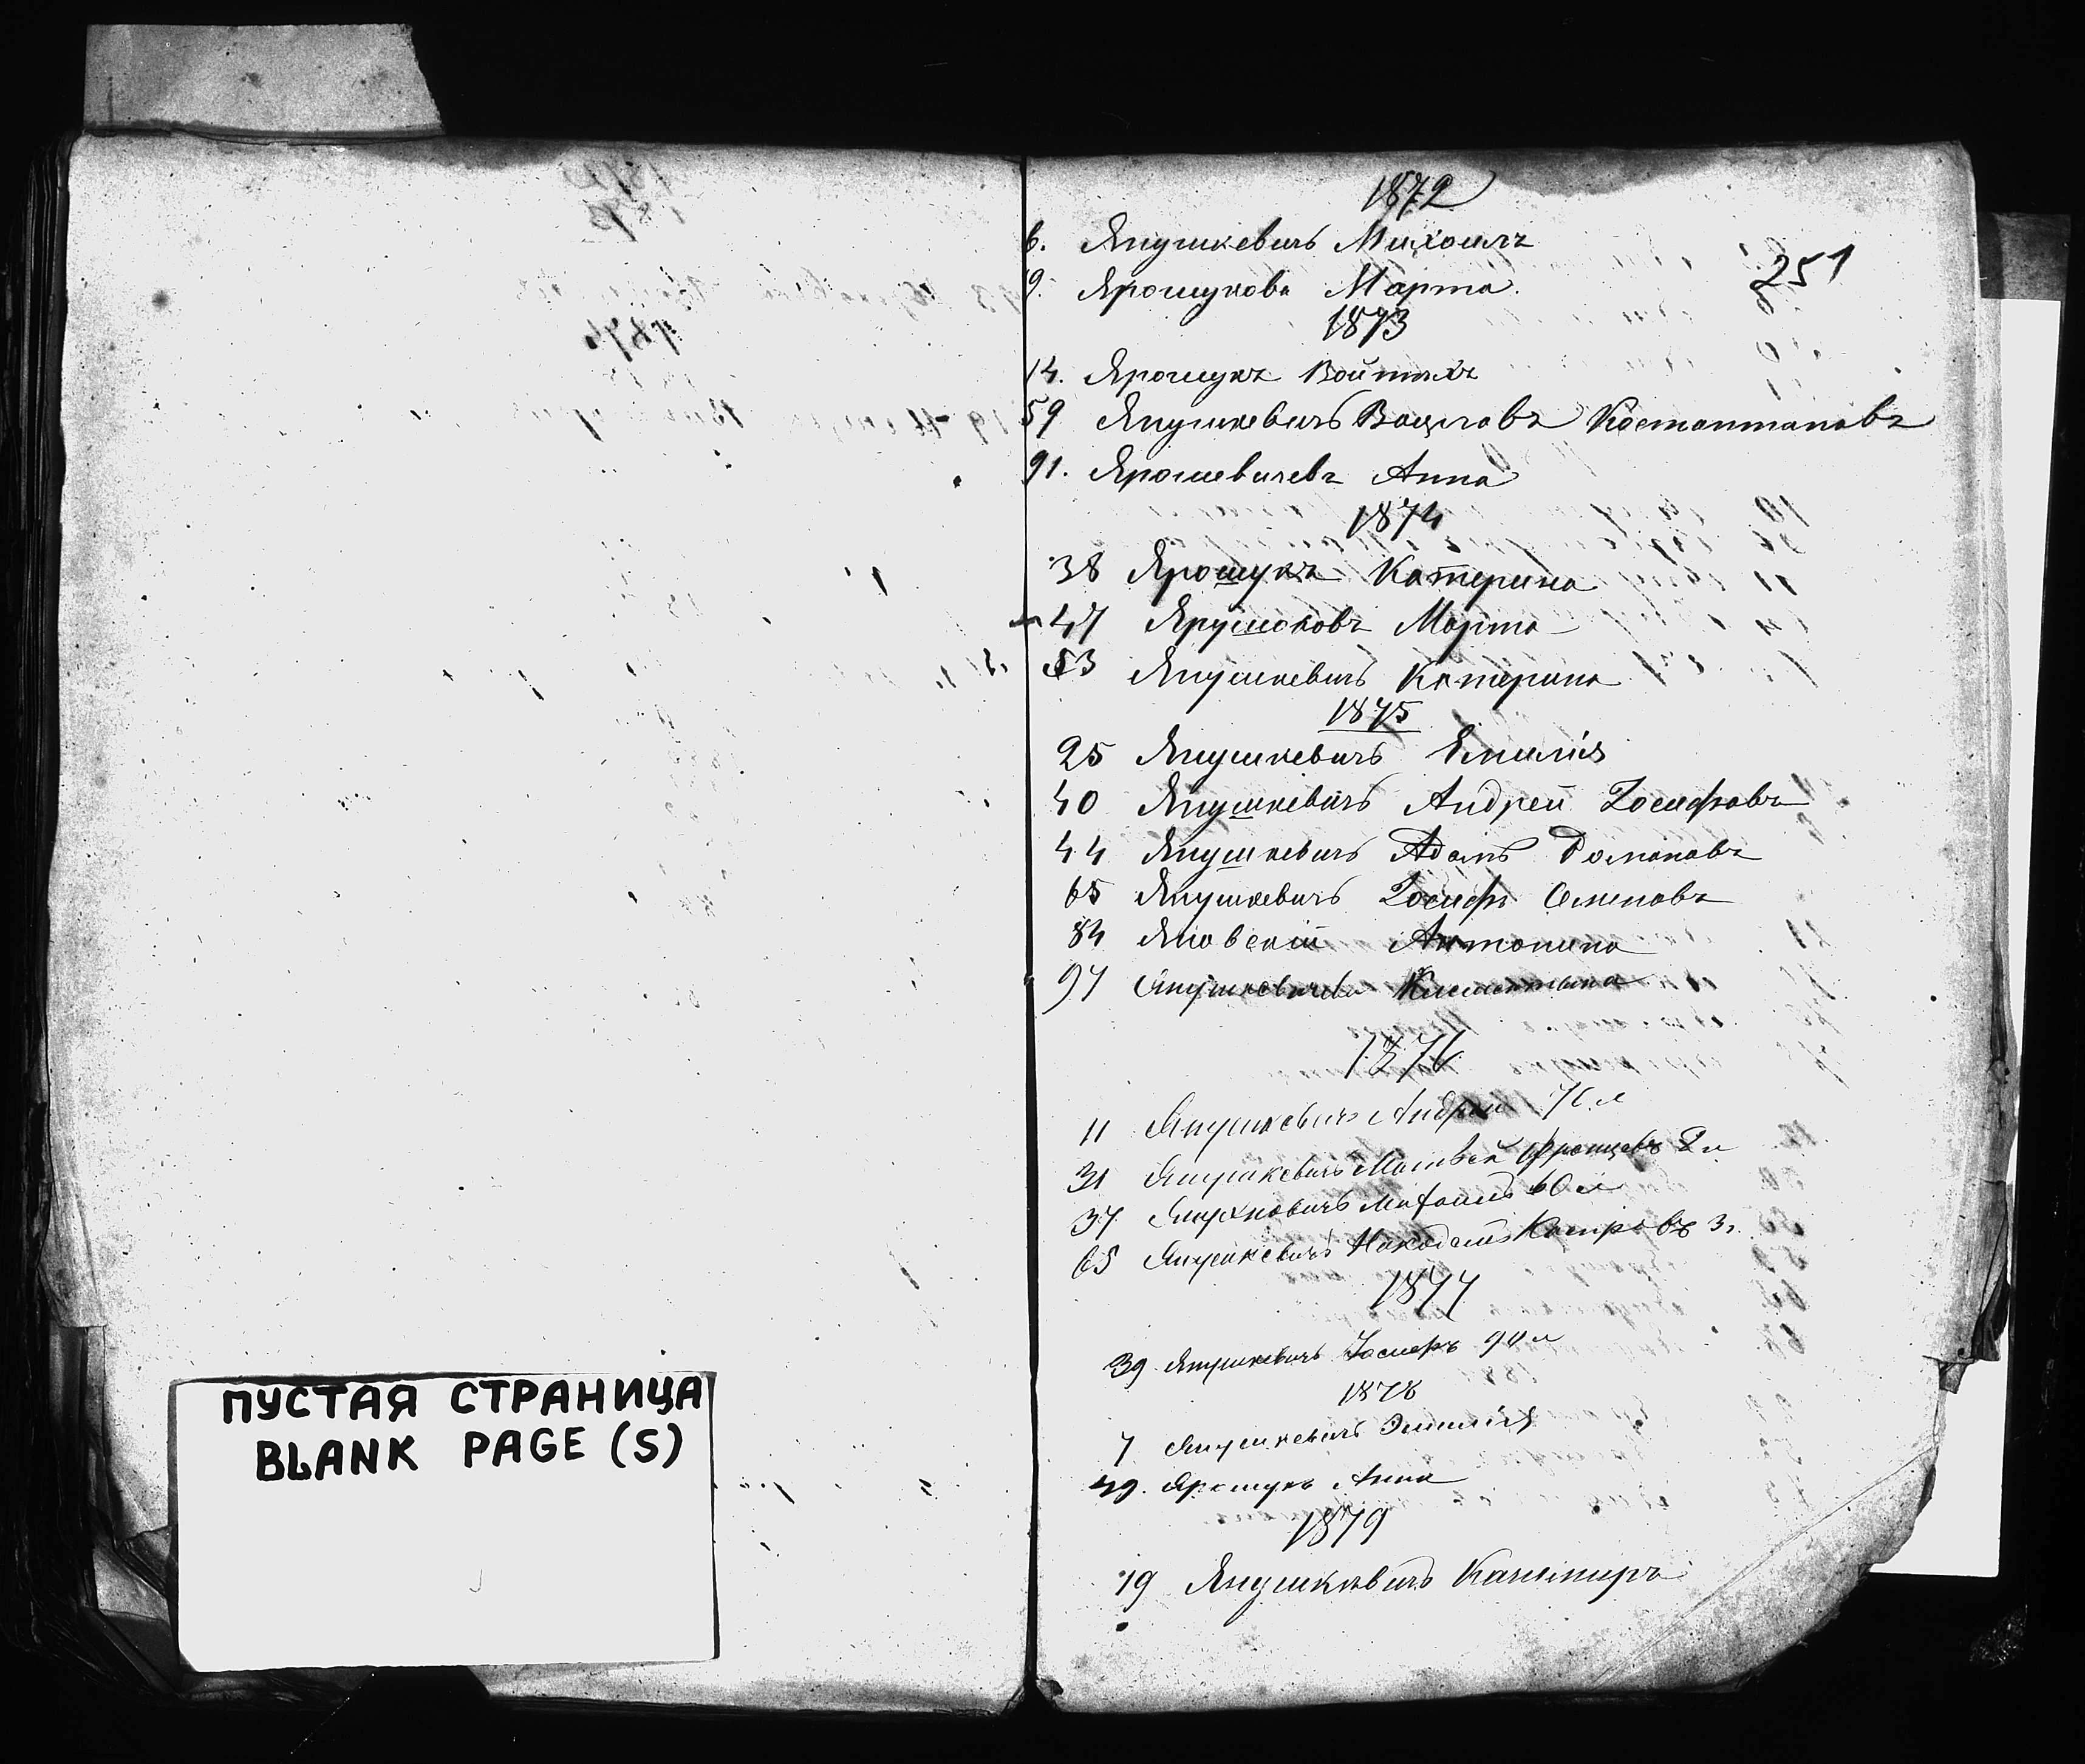 ПУСТАЯ СТРАНИЦА
BLANK PAGE (S)
1872
6. Янушкевичъ Михаилъ
251
9. Ярошукова Марта.
1873
14. Ярошукъ Войтехъ
59 Янушкевичъ Вацлавъ Костантановъ
91. Ярошевичевъ Анна
1874
38 Ярошукъ Катерина
47 Ярушковъ Марта
53 Янушкевичъ Катерина
1875
25 Янушкевичъ Емилія
40 Янушкевичъ Андрей Іосифовъ
44 Янушкевичъ Адамъ Романовъ
65 Янушкевичъ Іосифъ Семеновъ
84 Яновскій Антонина
97 Янушкевичева Клементина
1876
11 Янушкевичъ Андрей 70 л
31 Янушкевичъ Матвей Францевъ 2 л
37 Михаилъ 60 л
65 Янушкевичъ Никодимъ 3 г.
1877
39 Янушкевичъ Іосифъ 90 л
1878
7 Янушкевичъ Эмилія
49. Ярошукъ Анна
1879
19 Янушкевичъ Казимиръ